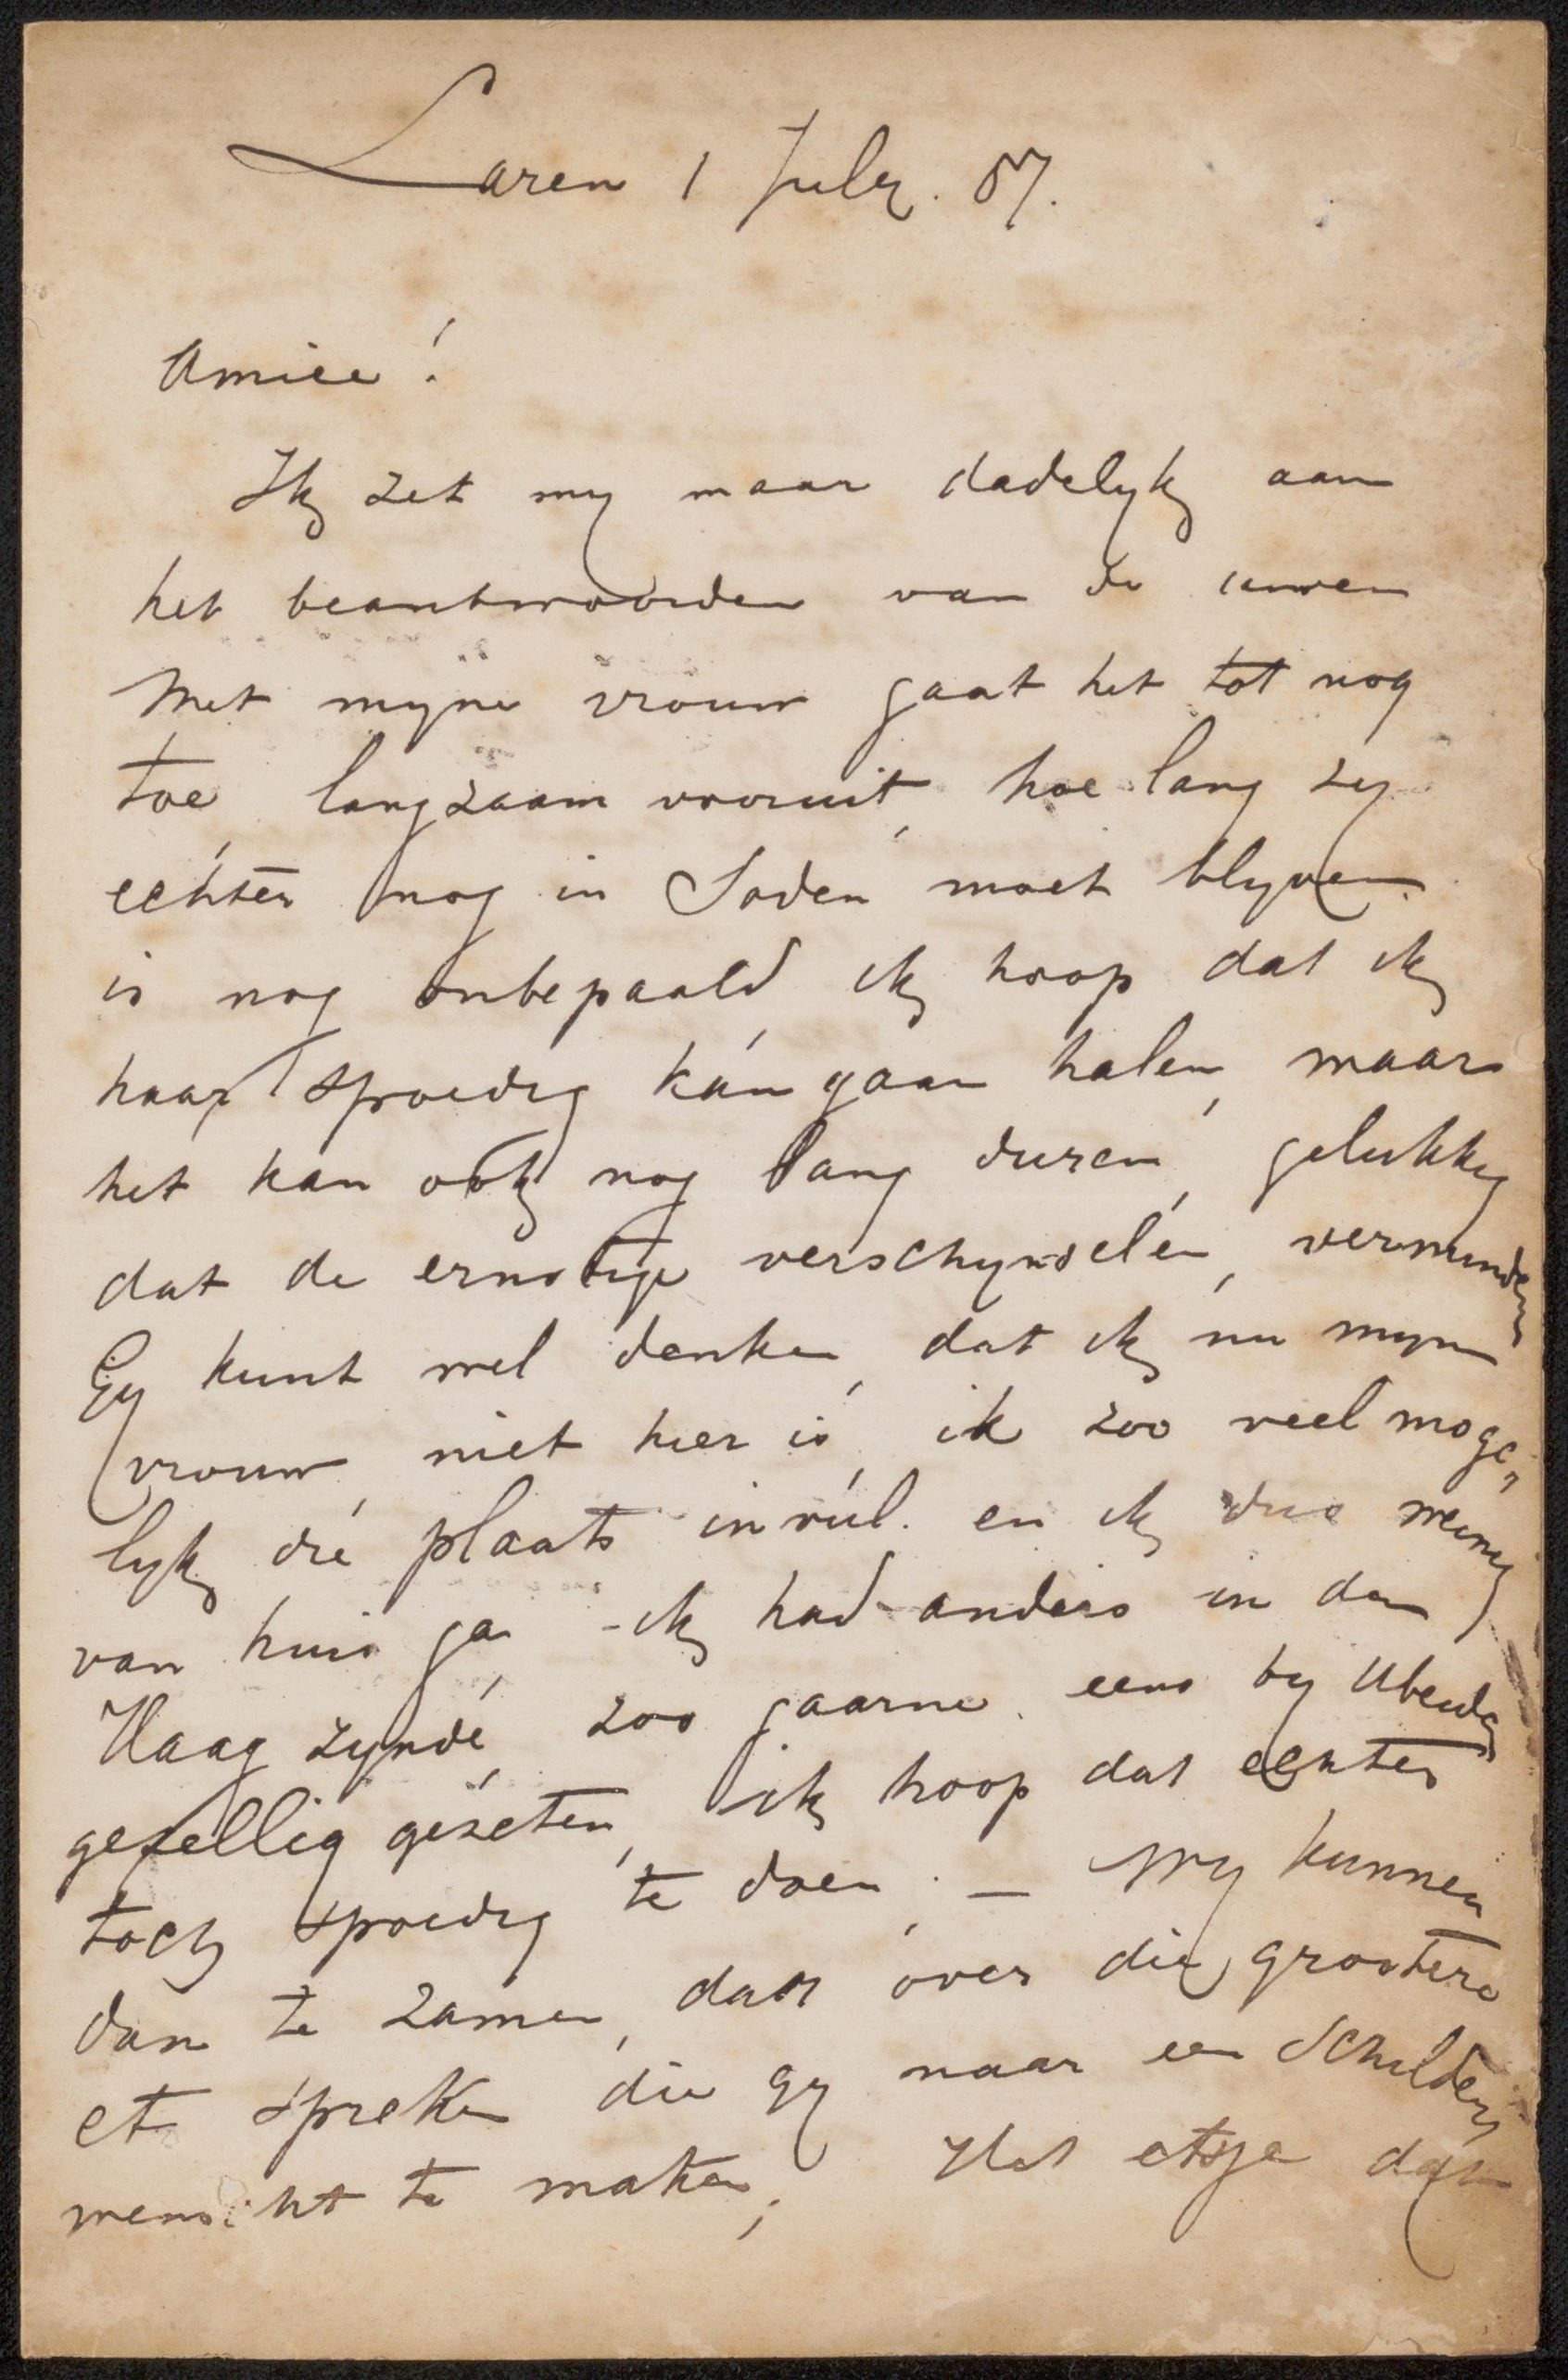 Laren 1 July. 87.
Amice!
Ik zet my maar dadelyk aan
het beantwoorden van de uwen
Met myne vrouw gaat het tot nog
toe langzaam vooruit, hoe lang zy
echter nog in Soden moet blyven
is nog onbepaald, ik hoop dat ik
haar spoedig kan gaan halen, maar
het kan ook nog lang duren, gelukkig
dat de ernstige verschynselen, verminderen
Gy kunt wel denken dat ik nu myn
vrouw, niet hier is, ik zoo veel moge„
lyk die plaats invul. en ik dus weinig
van huis ga, - ik had anders in den
Haag zynde, zoo gaarne eens by Ubeide
gezellig gezeten, ik hoop dat echter
toch spoedig te doen. — Wy kunnen
dan te zamen, dan over die grootere
ets spreken die gy naar een Schildery
wenscht te maken; Het etsje dat